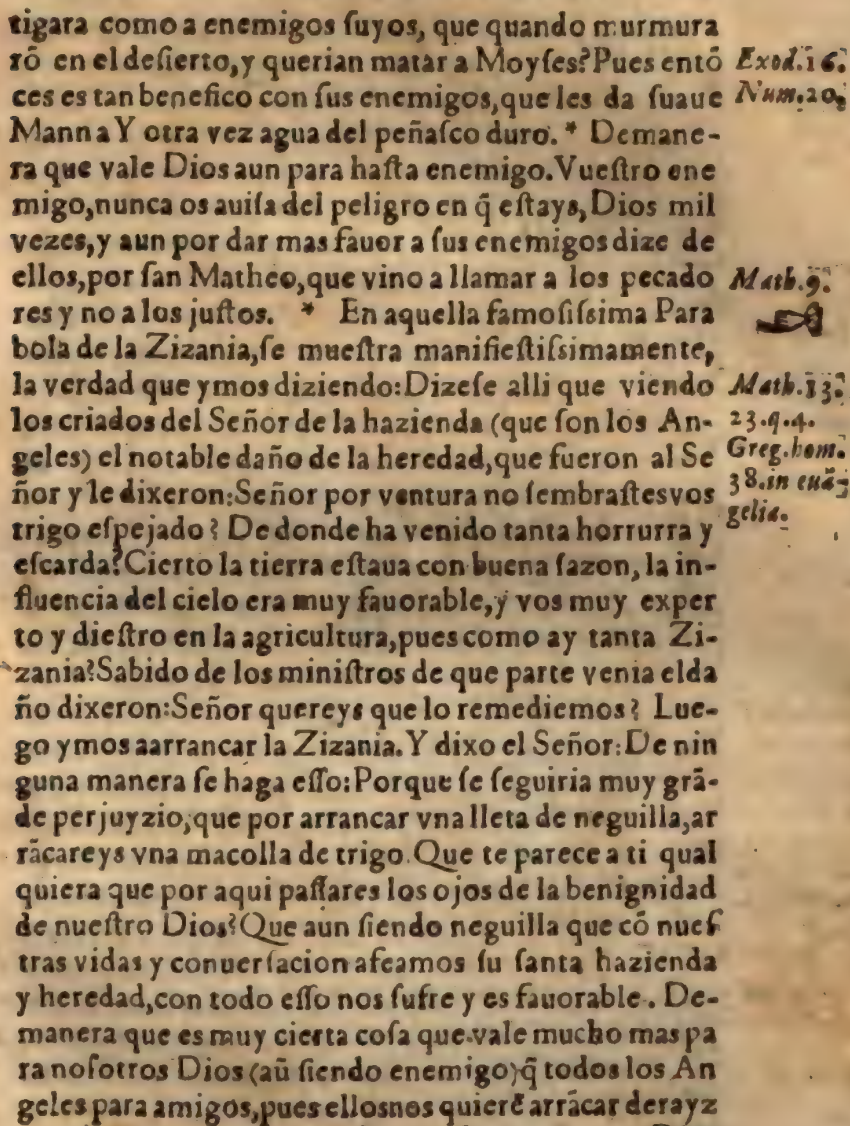 tigara como a enemigos ſuyos, que quando murmura
rō en el deſierto,y querian matar a Moyſes?Pues entō
ces es tan benefico con ſus enemigos,que les da ſuaue
Manna Y otra vez agua del peñaſco duro. * Demane-
ra que vale Dios aun para haſta enemigo.Vueſtro ene
migo,nunca os auiſa del peligro en q̄ eſtays, Dios mil
vezes,y aun por dar mas fauor a ſus enemigos dize de
ellos,por ſan Matheo,que vino a llamar a los pecado
res y no a los juſtos. * En aquella famoſiſsima Para
bola de la Zizania,ſe mueſtra manifieſtiſsimamente,
la verdad que ymos diziendo:Dizeſe alli que viendo
los criados del Señor de la hazienda (que ſon los An-
geles) el notable daño de la heredad,que fueron al Se
ñor y le dixeron:Señor por ventura no ſembraſtesvos
trigo eſpejado? De donde ha venido tanta horrurra y
eſcarda?Cierto la tierra eſtaua con buena ſazon, la in-
fluencia del cielo era muy fauorable,y vos muy exper
to y dieſtro en la agricultura,pues como ay tanta Zi-
zania?Sabido de los miniſtros de que parte venia elda
ño dixeron:Señor quereys que lo remediemos? Lue-
go ymos aarrancar la Zizania. Y dixo el Señor:De nin
guna manera ſe haga eſſo:Porque ſe ſeguiria muy grā-
de perjuyzio,que por arrancar vna lleta de neguilla,ar
rācareys vna macolla de trigo.Que te parece a ti qual
quiera que por aqui paſſares los ojos de la benignidad
de nueſtro Dios?Que aun ſiendo neguilla que cō nueſ
tras vidas y conuerſacion afeamos ſu ſanta hazienda
y heredad,con todo eſſo nos ſufre y es fauorable. De-
manera que es muy cierta coſa que vale mucho mas pa
ra noſotros Dios (aū ſiendo enemigo)q̄ todos los An
geles para amigos,pues ellosnos quierē arrācar derayz
Exod.16.
Num.20.
Math.9.
Math.13.
23.q.4.
Greg.hom.
38.in euā-
gelia.